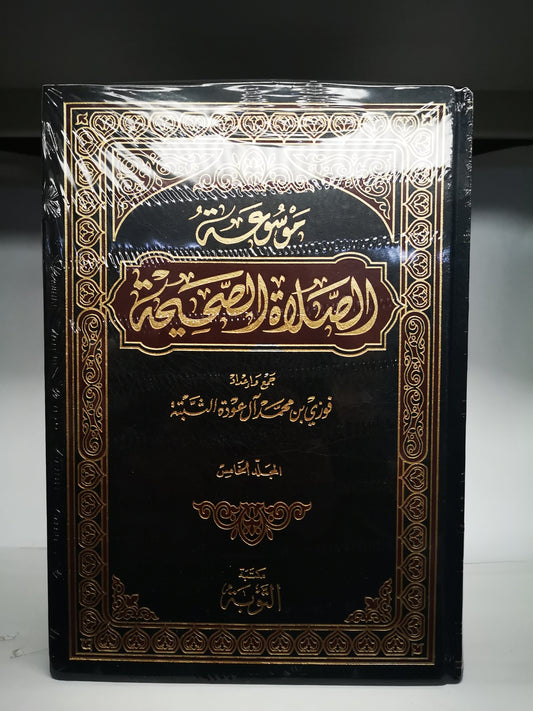 موسوعة
الصلاة الصحيحة
جمع وإعداد
فوزي بن محمد آل عودة الثبتة
المجلد الخامس
مكتبة
التوبة